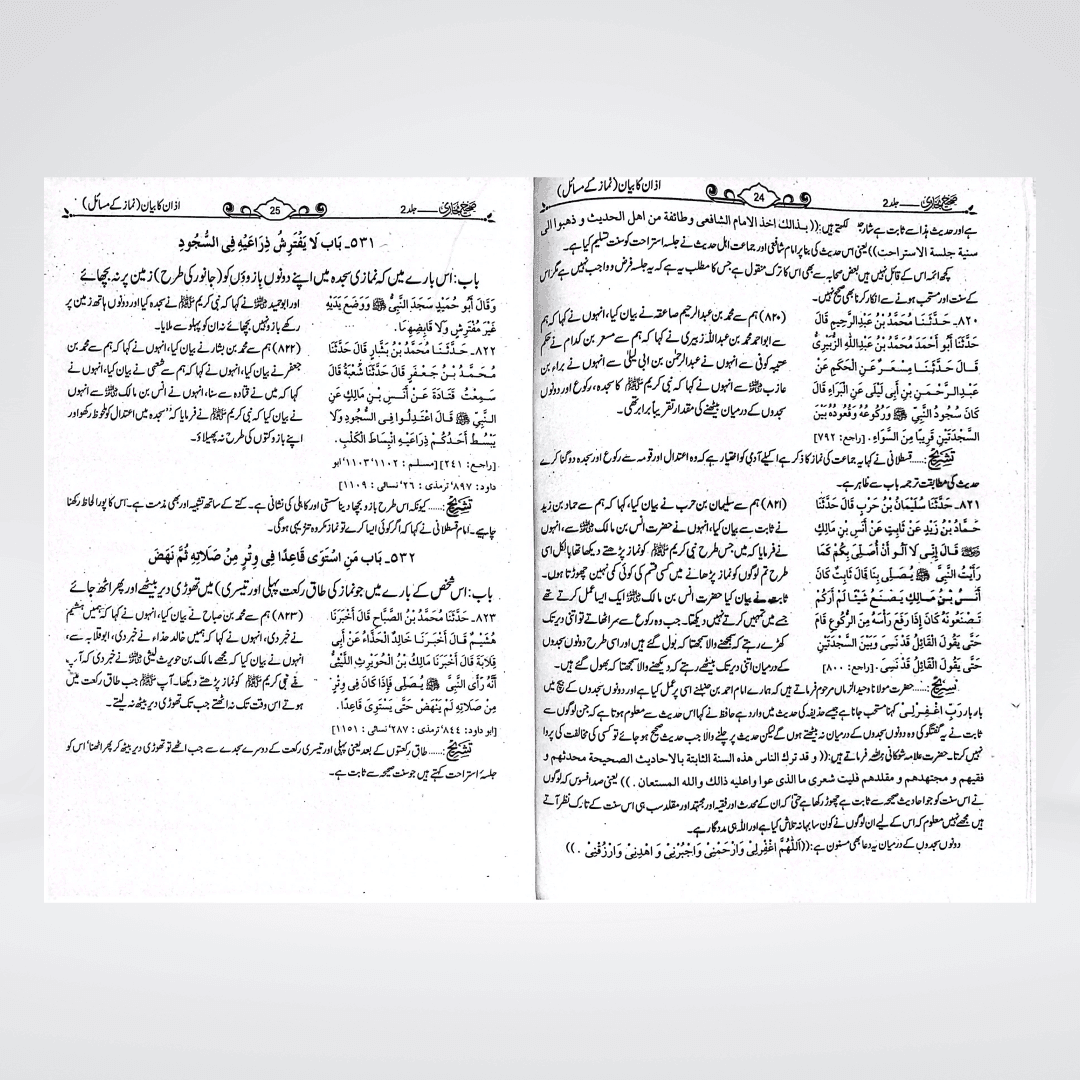 صحیح بخاری جلد 2
24
اذان کا بیان (نماز کے مسائل)
ہے اور حدیث ہذا سے ثابت ہے شارح لکھتے ہیں: ((بذالك اخذ الامام الشافعی وطائفة من اهل الحدیث و ذهبوا الی
سنیة جلسة الاستراحت)) یعنی اس حدیث کی بنا پر امام شافعی اور جماعت اہل حدیث نے جلسہ استراحت کو سنت تسلیم کیا ہے۔
کچھ ائمہ اس کے قائل نہیں ہیں بعض صحابہ سے بھی اس کا ترک منقول ہے جس کا مطلب یہ ہے کہ یہ جلسہ فرض و واجب نہیں ہے مگر اس
کے سنت اور مستحب ہونے سے انکار کرنا بھی صحیح نہیں۔
٨٢٠۔ حَدَّثَنَا مُحَمَّدُ بْنُ عَبْدِالرَّحِيمِ قَالَ
حَدَّثَنَا أَبُو أَحْمَدَ مُحَمَّدُ بْنُ عَبْدِاللَّهِ الزُّبَيْرِيُّ
قَالَ حَدَّثَنَا مِسْعَرٌ عَنِ الْحَكَمِ عَنْ
عَبْدِالرَّحْمَنِ بْنِ أَبِي لَيْلَى عَنِ الْبَرَاءِ قَالَ
كَانَ سُجُودُ النَّبِيِّ ﷺ وَرُكُوعُهُ وَقُعُودُهُ بَيْنَ
السَّجْدَتَيْنِ قَرِيبًا مِنَ السَّوَاءِ۔ [راجع: ٧٩٢]
(۸۲۰) ہم سے محمد بن عبدالرحیم صاعقہ نے بیان کیا، انہوں نے کہا کہ ہم
سے ابو احمد محمد بن عبداللہ زبیری نے کہا کہ ہم سے مسعر بن کدام نے حکم
عتیبہ کوفی سے انہوں نے عبدالرحمٰن بن ابی لیلیٰ سے انہوں نے براء بن
عازب ؓ سے انہوں نے کہا کہ نبی کریم ﷺ کا سجدہ، رکوع اور دونوں
سجدوں کے درمیان بیٹھنے کی مقدار تقریباً برابر تھی۔
تشریح:..... قسطلانی نے کہا یہ جماعت کی نماز کا ذکر ہے اکیلے آدمی کو اختیار ہے کہ وہ اعتدال اور قومہ سے رکوع اور سجدہ دوگنا کرے
حدیث کی مطابقت ترجمہ باب سے ظاہر ہے۔
٨٢١۔ حَدَّثَنَا سُلَيْمَانُ بْنُ حَرْبٍ قَالَ حَدَّثَنَا
حَمَّادُ بْنُ زَيْدٍ عَنْ ثَابِتٍ عَنْ أَنَسِ بْنِ مَالِكٍ
قَالَ إِنِّي لَا آلُو أَنْ أُصَلِّيَ بِكُمْ كَمَا
رَأَيْتُ النَّبِيَّ ﷺ يُصَلِّي بِنَا قَالَ ثَابِتٌ كَانَ
أَنَسُ بْنُ مَالِكٍ يَصْنَعُ شَيْئًا لَمْ أَرَكُمْ
تَصْنَعُونَهُ كَانَ إِذَا رَفَعَ رَأْسَهُ مِنَ الرُّكُوعِ قَامَ
حَتَّى يَقُولَ الْقَائِلُ قَدْ نَسِيَ وَبَيْنَ السَّجْدَتَيْنِ
حَتَّى يَقُولَ الْقَائِلُ قَدْ نَسِيَ۔ [راجع: ٨٠٠]
(۸۲۱) ہم سے سلیمان بن حرب نے بیان کیا، کہا کہ ہم سے حماد بن زید
نے ثابت سے بیان کیا، انہوں نے حضرت انس بن مالک ؓ سے، انہوں
نے فرمایا کہ میں جس طرح نبی کریم ﷺ کو نماز پڑھتے دیکھا تھا بالکل اسی
طرح تم لوگوں کو نماز پڑھانے میں کسی قسم کی کوئی کمی نہیں چھوڑتا ہوں۔
ثابت نے بیان کیا حضرت انس بن مالک ؓ ایک ایسا عمل کرتے تھے
جسے میں تمہیں کرتے نہیں دیکھتا۔ جب وہ رکوع سے سر اٹھاتے تو اتنی دیر تک
کھڑے رہتے کہ سمجھنے والا سمجھتا کہ بھول گئے ہیں اور اسی طرح دونوں سجدوں
کے درمیان اتنی دیر تک بیٹھے رہتے کہ دیکھنے والا سمجھتا کہ بھول گئے ہیں۔
تشریح:..... حضرت مولانا وحید الزماں مرحوم فرماتے ہیں کہ ہمارے امام احمد بن حنبل نے اسی پر عمل کیا ہے اور دونوں سجدوں کے بیچ میں
بار بار رَبِّ اغْفِرْلِیْ کہنا مستحب جانا ہے جیسے حذیفہ کی حدیث میں وارد ہے حافظ نے کہا اس حدیث سے معلوم ہوتا ہے کہ جن لوگوں سے
ثابت نے یہ گفتگو کی وہ دونوں سجدوں کے درمیان نہ بیٹھتے ہوں گے لیکن حدیث پر چلنے والا جب حدیث صحیح ہو جائے تو کسی کی مخالفت کی پروا
نہیں کرتا۔ حضرت علامہ شوکانی فرماتے ہیں: ((وقد ترك الناس هذه السنة الثابتة بالاحادیث الصحیحة محدثهم و
فقیهم و مجتهدهم و مقلدهم فلیت شعری ما الذی عوا وعلیه ذالك والله المستعان۔)) یعنی صد افسوس کہ لوگوں
نے اس سنت کو جو احادیث صحیحہ سے ثابت ہے چھوڑ رکھا ہے حتیٰ کہ ان کے محدث اور فقیہ اور مجتہد اور مقلد سب ہی اس سنت کے تارک نظر آتے
ہیں مجھے نہیں معلوم کہ اس کے لیے ان لوگوں نے کون سا بہانہ تلاش کیا ہے اور اللہ ہی مددگار ہے۔
دونوں سجدوں کے درمیان یہ دعا بھی مسنون ہے: ((اَللّٰهُمَّ اغْفِرْلِیْ وَارْحَمْنِیْ وَاجْبُرْنِیْ وَاهْدِنِیْ وَارْزُقْنِیْ۔))
صحیح بخاری جلد 2
25
اذان کا بیان (نماز کے مسائل)
٥٣١۔ بَاب لَا يَفْتَرِشُ ذِرَاعَيْهِ فِي السُّجُودِ
باب: اس بارے میں کہ نمازی سجدہ میں اپنے دونوں بازوؤں کو (جانور کی طرح) زمین پر نہ بچھائے
وَقَالَ أَبُو حُمَيْدٍ سَجَدَ النَّبِيُّ ﷺ وَوَضَعَ يَدَيْهِ
غَيْرَ مُفْتَرِشٍ وَلَا قَابِضِهِمَا۔
اور ابو حمید ؓ نے کہا کہ نبی کریم ﷺ نے سجدہ کیا اور دونوں ہاتھ زمین پر
رکھے بازو نہیں بچھائے نہ ان کو پہلو سے ملایا۔
٨٢٢۔ حَدَّثَنَا مُحَمَّدُ بْنُ بَشَّارٍ قَالَ حَدَّثَنَا
مُحَمَّدُ بْنُ جَعْفَرٍ قَالَ حَدَّثَنَا شُعْبَةُ قَالَ
سَمِعْتُ قَتَادَةَ عَنْ أَنَسِ بْنِ مَالِكٍ عَنِ
النَّبِيِّ ﷺ قَالَ اعْتَدِلُوا فِي السُّجُودِ وَلَا
يَبْسُطْ أَحَدُكُمْ ذِرَاعَيْهِ انْبِسَاطَ الْكَلْبِ۔
[راجع: ٢٤١] [مسلم: ١١٠٢، ١١٠٣، ابو
داود: ٨٩٧، ترمذی: ٢٦، نسائی: ١١٠٩]
(۸۲۲) ہم سے محمد بن بشار نے بیان کیا، انہوں نے کہا کہ ہم سے محمد بن
جعفر نے بیان کیا، انہوں نے کہا کہ ہم سے شعبی نے بیان کیا، انہوں نے
کہا کہ میں نے قتادہ سے سنا، انہوں نے انس بن مالک ؓ سے انہوں
نے بیان کیا کہ نبی کریم ﷺ نے فرمایا کہ "سجدہ میں اعتدال کو ملحوظ رکھو اور
اپنے بازو کتوں کی طرح نہ پھیلاؤ۔
تشریح:..... کیونکہ اس طرح بازو بچھا دینا سستی اور کاہلی کی نشانی ہے۔ کتے کے ساتھ تشبیہ اور بھی مذمت ہے۔ اس کا پورا لحاظ رکھنا
چاہیے۔ امام قسطلانی نے کہا کہ اگر کوئی ایسا کرے تو نماز مکروہ تنزیہی ہوگی۔
٥٣٢۔ بَاب مَنِ اسْتَوَى قَاعِدًا فِي وِتْرٍ مِنْ صَلَاتِهِ ثُمَّ نَهَضَ
باب: اس شخص کے بارے میں جو نماز کی طاق رکعت (پہلی اور تیسری) میں تھوڑی دیر بیٹھے اور پھر اٹھ جائے
٨٢٣۔ حَدَّثَنَا مُحَمَّدُ بْنُ الصَّبَّاحِ قَالَ أَخْبَرَنَا
هُشَيْمٌ قَالَ أَخْبَرَنَا خَالِدٌ الْحَذَّاءُ عَنْ أَبِي
قِلَابَةَ قَالَ أَخْبَرَنَا مَالِكُ بْنُ الْحُوَيْرِثِ اللَّيْثِيُّ
أَنَّهُ رَأَى النَّبِيَّ ﷺ يُصَلِّي فَإِذَا كَانَ فِي وِتْرٍ
مِنْ صَلَاتِهِ لَمْ يَنْهَضْ حَتَّى يَسْتَوِيَ قَاعِدًا۔
[ابو داود: ٨٤٤، ترمذی: ٢٨٧، نسائی: ١١٥١]
(۸۲۳) ہم سے محمد بن صباح نے بیان کیا، انہوں نے کہا کہ ہمیں ہشیم
نے خبر دی، انہوں نے کہا کہ ہمیں خالد حذاء نے خبر دی، ابو قلابہ سے،
انہوں نے بیان کیا کہ مجھے مالک بن حویرث لیثی ؓ نے خبر دی کہ آپ
نے نبی کریم ﷺ کو نماز پڑھتے دیکھا۔ آپ ﷺ جب طاق رکعت میں
ہوتے اس وقت تک نہ اٹھتے جب تک تھوڑی دیر بیٹھ نہ لیتے۔
تشریح:..... طاق رکعتوں کے بعد یعنی پہلی اور تیسری رکعت کے دوسرے سجدے سے جب اٹھے تو تھوڑی دیر بیٹھ کر پھر اٹھنا، اس کو
جلسۂ استراحت کہتے ہیں جو سنت صحیحہ سے ثابت ہے۔